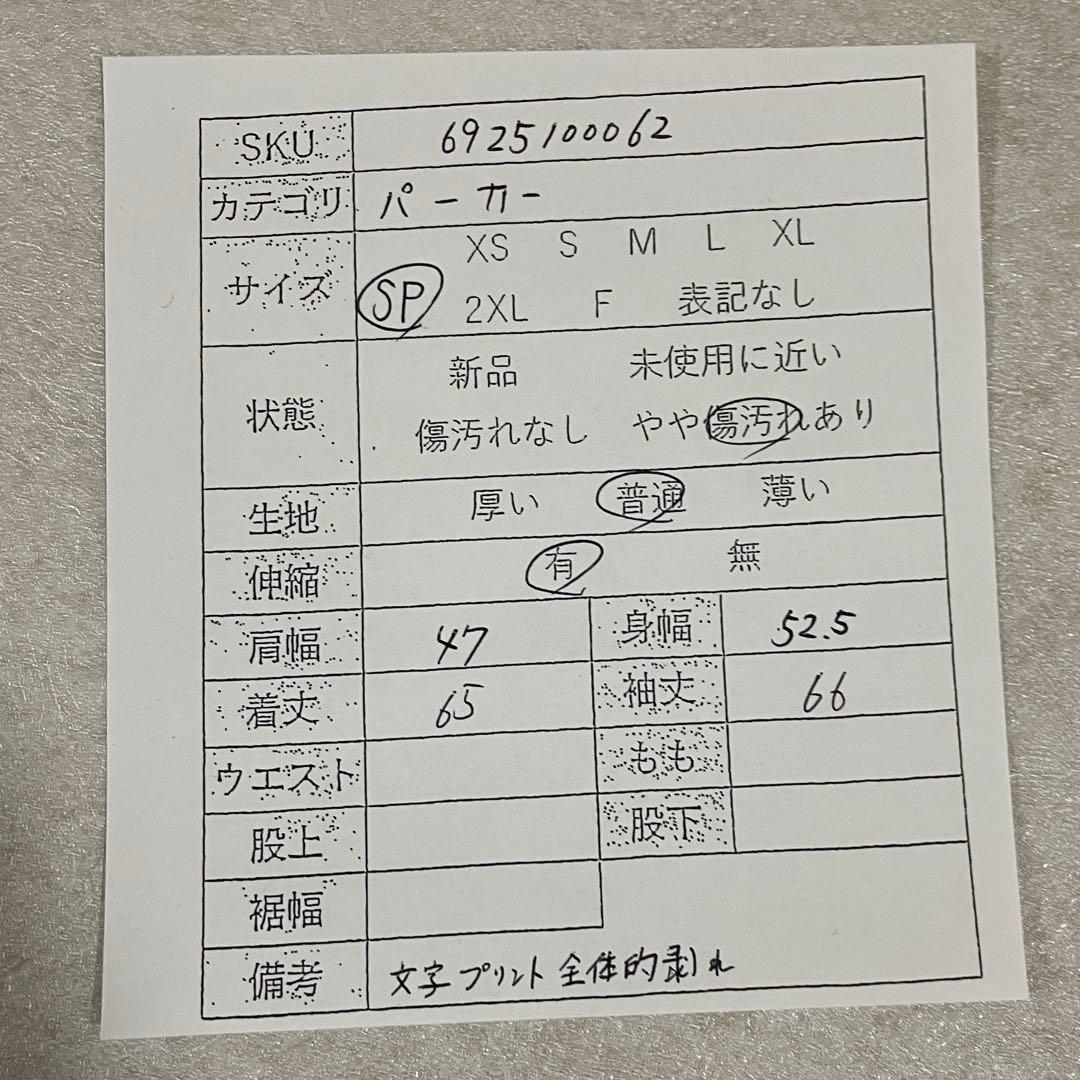 SKU 6925100062
カテゴリ パーカー
サイズ XS S M L XL
SP 2XL F 表記なし
状態 新品 未使用に近い
傷汚れなし やや傷汚れあり
生地 厚い 普通 薄い
伸縮 有 無
肩幅 47 身幅 52.5
着丈 65 袖丈 66
ウエスト もも
股上 股下
裾幅
備考 文字プリント全体的剥れ